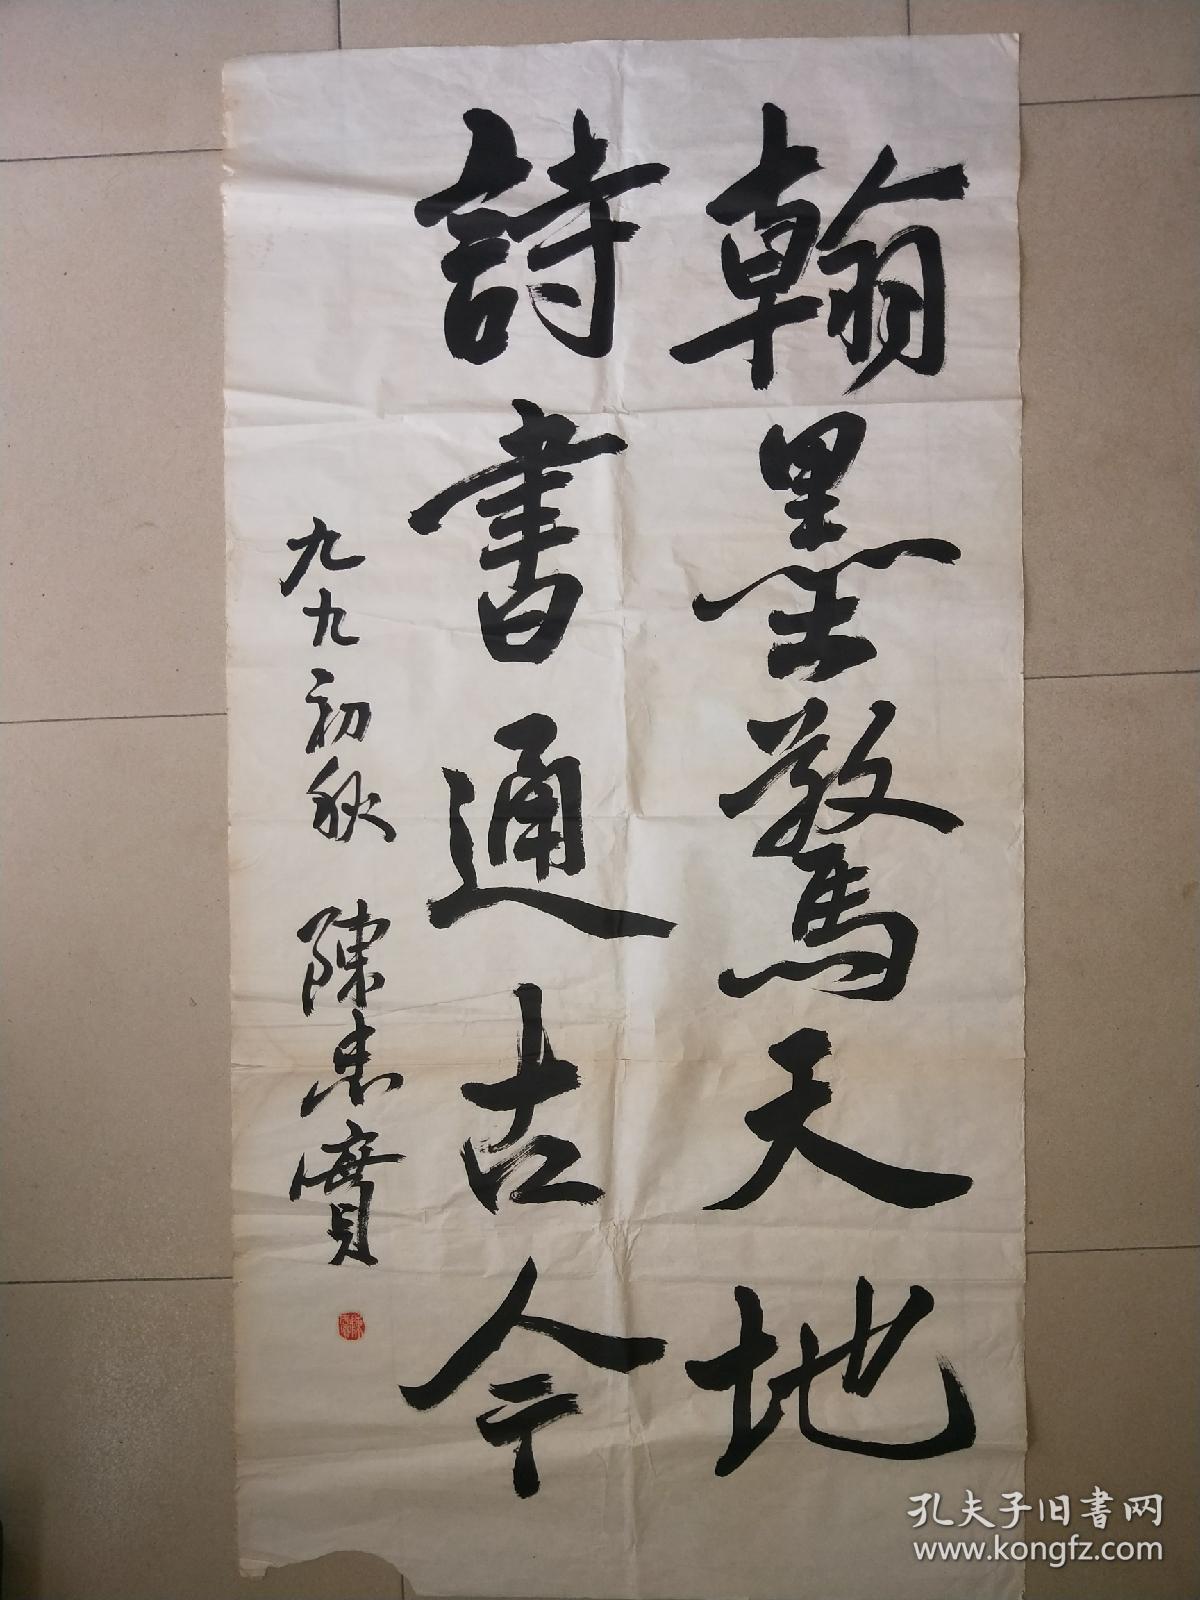 翰墨驚天地
詩書通古今
九九初秋 陳忠實
孔夫子旧书网
www.kongfz.com